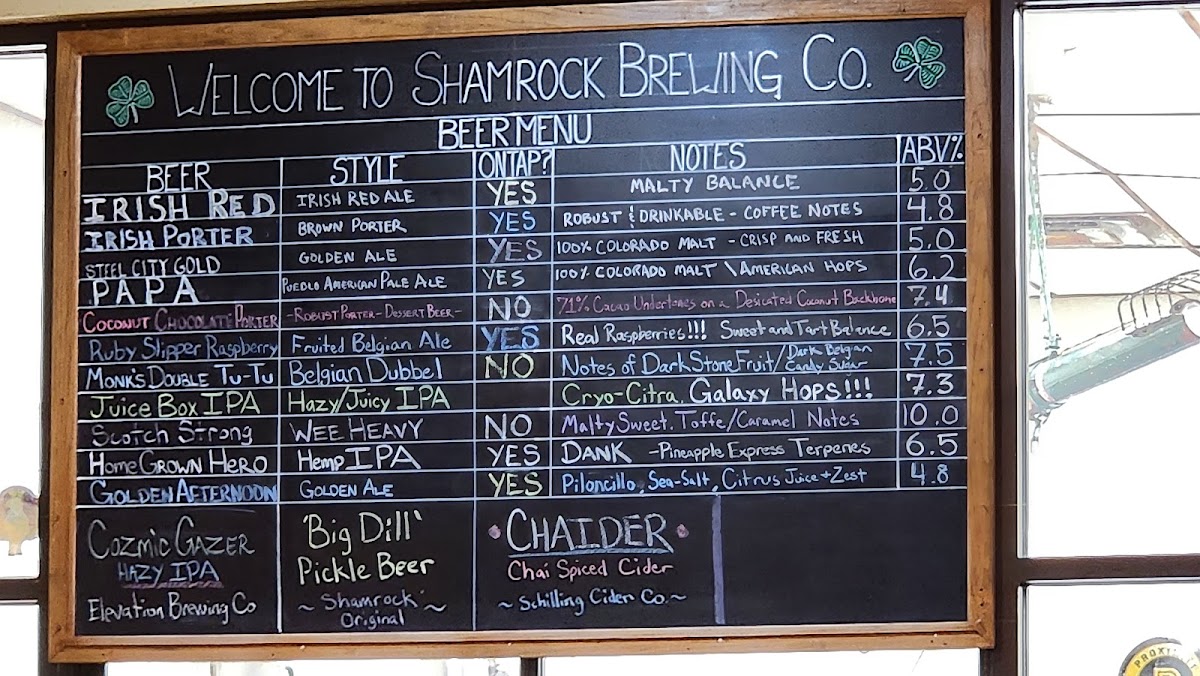 WELCOME TO SHAMROCK BREWING CO.
BEER MENU
BEER STYLE ON TAP? NOTES ABV%
IRISH RED IRISH RED ALE YES MALTY BALANCE 5.0
IRISH PORTER BROWN PORTER YES ROBUST & DRINKABLE - COFFEE NOTES 4.8
STEEL CITY GOLD GOLDEN ALE YES 100% COLORADO MALT - CRISP AND FRESH 5.0
PAPA PUEBLO AMERICAN PALE ALE YES 100% COLORADO MALT \ AMERICAN HOPS 6.2
COCONUT CHOCOLATE PORTER - ROBUST PORTER - DESSERT BEER - NO 71% Cacao Undertones on a Desicated Coconut Backbone 7.4
Ruby Slipper Raspberry Fruited Belgian Ale YES Real Raspberries!!! Sweet and Tart Balance 6.5
MONK'S DOUBLE TU-TU Belgian Dubbel NO Notes of Dark Stone Fruit/ Dark Belgian Candy Sugar 7.5
Juice Box IPA Hazy/Juicy IPA Cryo-Citra, Galaxy Hops!!! 7.3
Scotch Strong WEE HEAVY NO Malty Sweet, Toffe/Caramel Notes 10.0
HOMEGROWN HERO Hemp IPA YES DANK - Pineapple Express Terpenes 6.5
GOLDEN AFTERNOON GOLDEN ALE YES Piloncillo, Sea-Salt, Citrus Juice + Zest 4.8
COZMIC GAZER
HAZY IPA
Elevation Brewing Co
'Big Dill'
Pickle Beer
~ Shamrock ~
Original
CHAIDER
Chai Spiced Cider
~ Schilling Cider Co. ~